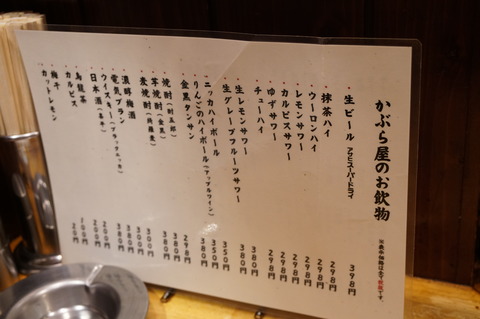 かぶら屋のお飲物
※表示価格は全て税抜です。
・生ビール アサヒスーパードライ 398円
・抹茶ハイ 298円
・ウーロンハイ 298円
・レモンサワー 298円
・カルピスサワー 298円
・ゆずサワー 298円
・チューハイ
・生レモンサワー 380円
・生グレープフルーツサワー 380円
・ニッカハイボール 350円
・りんごのハイボール(アップルワイン) 380円
・金黒タンサン 298円
・焼酎
・芋焼酎(金黒)
・麦焼酎
・濃醇梅酒 380円
・電気ブラン
・ウイスキー(ブラックニッカ)
・日本酒
・烏龍茶
・カルピス
・梅干
・カットレモン 20円